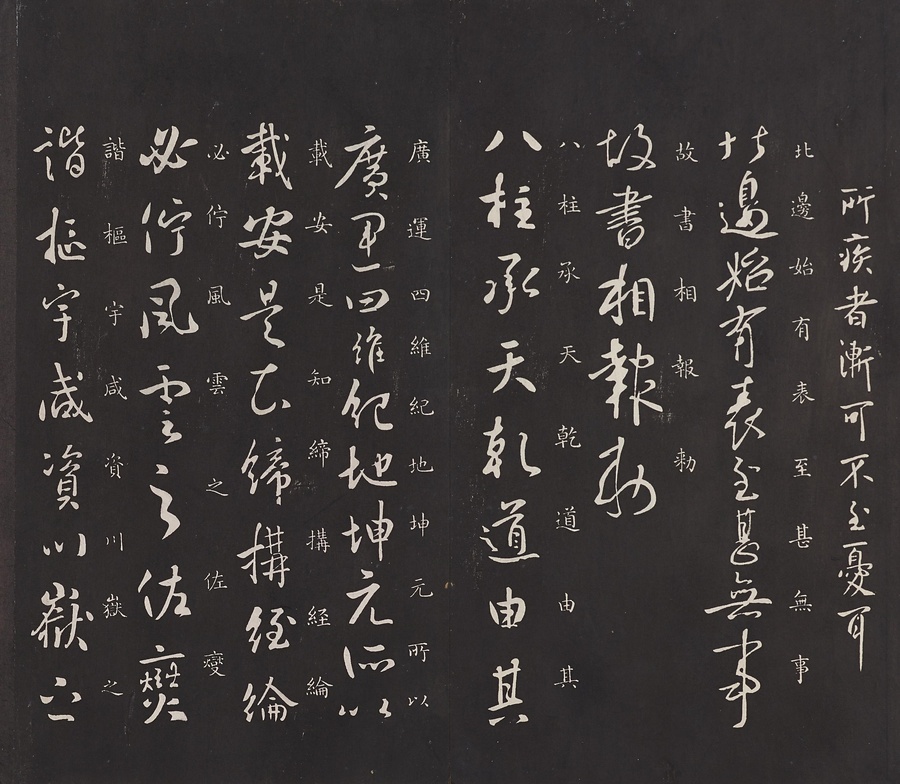 所疾者漸可不至憂耳
北邊始有表至甚無事
北邊始有表至甚無事
故書相報勑
故書相報勑
八柱承天乾道由其
八柱承天乾道由其
廣運四維紀地坤元所以
廣運四維紀地坤元所以
載安是知締構経綸
載安是知締構経綸
必佇風雲之佐燮
必佇風雲之佐燮
諧樞宇咸資川嶽之
諧樞宇咸資川嶽之